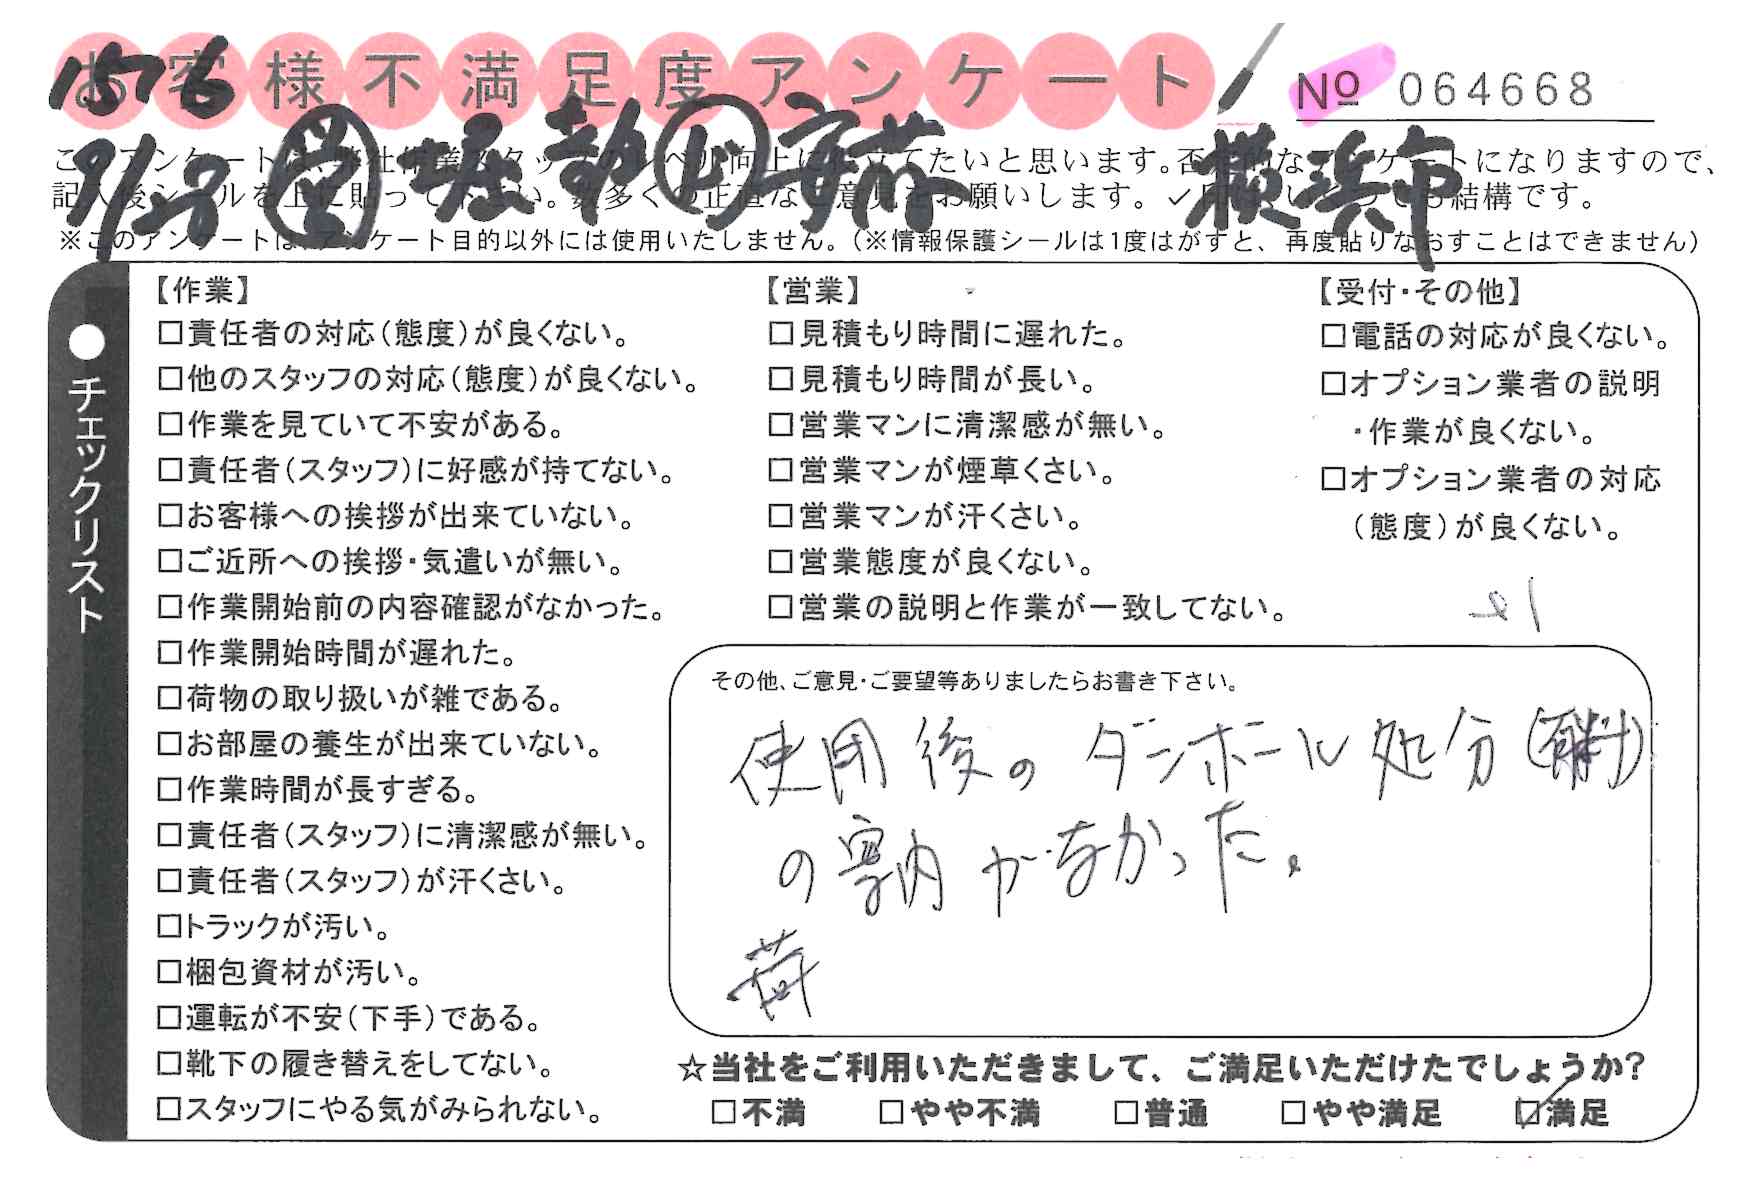 お客様不満足度アンケート
№ 064668
1576
9/28 堀 安藤 横浜市
このアンケートは、弊社作業スタッフのレベル向上に役立てたいと思います。否定的なアンケートになりますので、
記入後シールを上に貼って下さい。数多くの正直なご意見をお願いします。✓印は
も結構です。
※このアンケートは、アンケート目的以外には使用いたしません。(※情報保護シールは1度はがすと、再度貼りなおすことはできません)
●チェックリスト
【作業】
□責任者の対応(態度)が良くない。
□他のスタッフの対応(態度)が良くない。
□作業を見ていて不安がある。
□責任者(スタッフ)に好感が持てない。
□お客様への挨拶が出来ていない。
□ご近所への挨拶・気遣いが無い。
□作業開始前の内容確認がなかった。
□作業開始時間が遅れた。
□荷物の取り扱いが雑である。
□お部屋の養生が出来ていない。
□作業時間が長すぎる。
□責任者(スタッフ)に清潔感が無い。
□責任者(スタッフ)が汗くさい。
□トラックが汚い。
□梱包資材が汚い。
□運転が不安(下手)である。
□靴下の履き替えをしてない。
□スタッフにやる気がみられない。
【営業】
□見積もり時間に遅れた。
□見積もり時間が長い。
□営業マンに清潔感が無い。
□営業マンが煙草くさい。
□営業マンが汗くさい。
□営業態度が良くない。
□営業の説明と作業が一致してない。
【受付・その他】
□電話の対応が良くない。
□オプション業者の説明
・作業が良くない。
□オプション業者の対応
(態度)が良くない。
その他、ご意見・ご要望等ありましたらお書き下さい。
使用後のダンボール処分(有料)
の案内がなかった。
☆当社をご利用いただきまして、ご満足いただけたでしょうか?
□不満 □やや不満 □普通 □やや満足 ☑満足